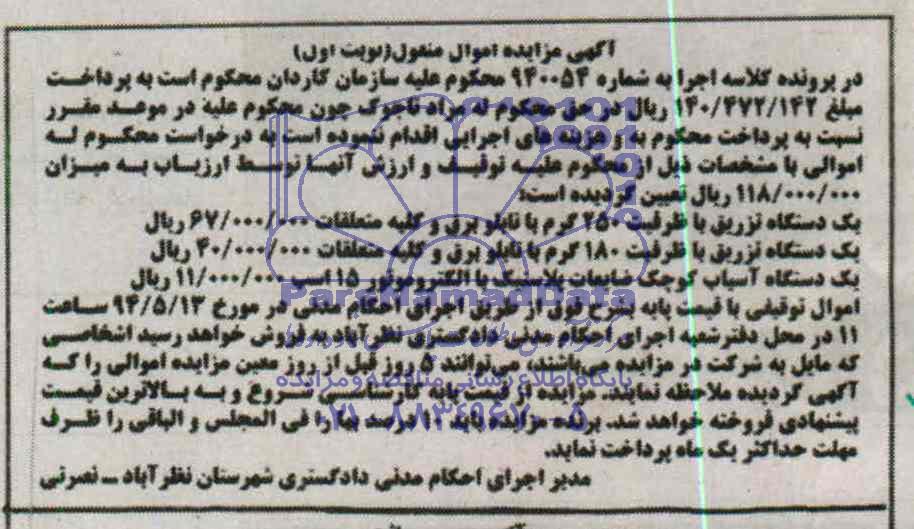 آگهی مزایده اموال منقول(نوبت اول)
در پرونده کلاسه اجرا به شماره ۹۴۰۰۵۴ محکوم علیه سازمان کاردان محکوم است به پرداخت
مبلغ ۱۴۰/۴۷۲/۱۴۲ ریال در حق محکوم له مراد تاجرک چون محکوم علیه در موعد مقرر
نسبت به پرداخت محکوم به و هزینه های اجرایی اقدام ننموده است به درخواست محکوم له
اموالی با مشخصات ذیل از محکوم علیه توقیف و ارزش آنها توسط ارزیاب به میزان
۱۱۸/۰۰۰/۰۰۰ ریال تعیین گردیده است:
یک دستگاه تزریق با ظرفیت ۲۵۰ گرم با تابلو برق و کلیه متعلقات ۶۷/۰۰۰/۰۰۰ ریال
یک دستگاه تزریق با ظرفیت ۱۸۰ گرم با تابلو برق و کلیه متعلقات ۴۰/۰۰۰/۰۰۰ ریال
یک دستگاه آسیاب کوچک ضایعات پلاستیک با الکتروموتور ۱۵ اسب ۱۱/۰۰۰/۰۰۰ ریال
اموال توقیفی با قیمت پایه بشرح فوق از طریق اجرای احکام مدنی در مورخ ۹۴/۵/۱۳ ساعت
۱۱ در محل دفتر شعبه اجرای احکام مدنی دادگستری نظرآباد به فروش خواهد رسید اشخاصی
که مایل به شرکت در مزایده می باشند، می توانند ۵ روز قبل از روز معین مزایده اموالی را که
آگهی گردیده ملاحظه نمایند. مزایده از قیمت پایه کارشناسی شروع و به بالاترین قیمت
پیشنهادی فروخته خواهد شد. برنده مزایده باید ۱۰ درصد بها را فی المجلس و الباقی را ظرف
مهلت حداکثر یک ماه پرداخت نماید.
مدیر اجرای احکام مدنی دادگستری شهرستان نظرآباد ــ نصرتی
ParsNamadData
پایگاه اطلاع رسانی مناقصه و مزایده
۰۲۱-۸۸۳۴۹۶۷۰-۵